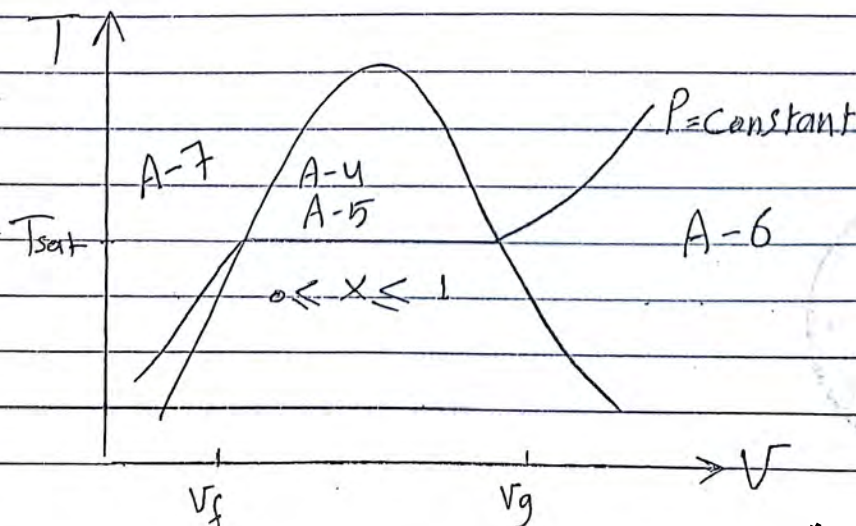 T
P=Constant
A-7
A-4
A-5
Tsat
A-6
0 ≤ X ≤ 1
V
Vf
Vg